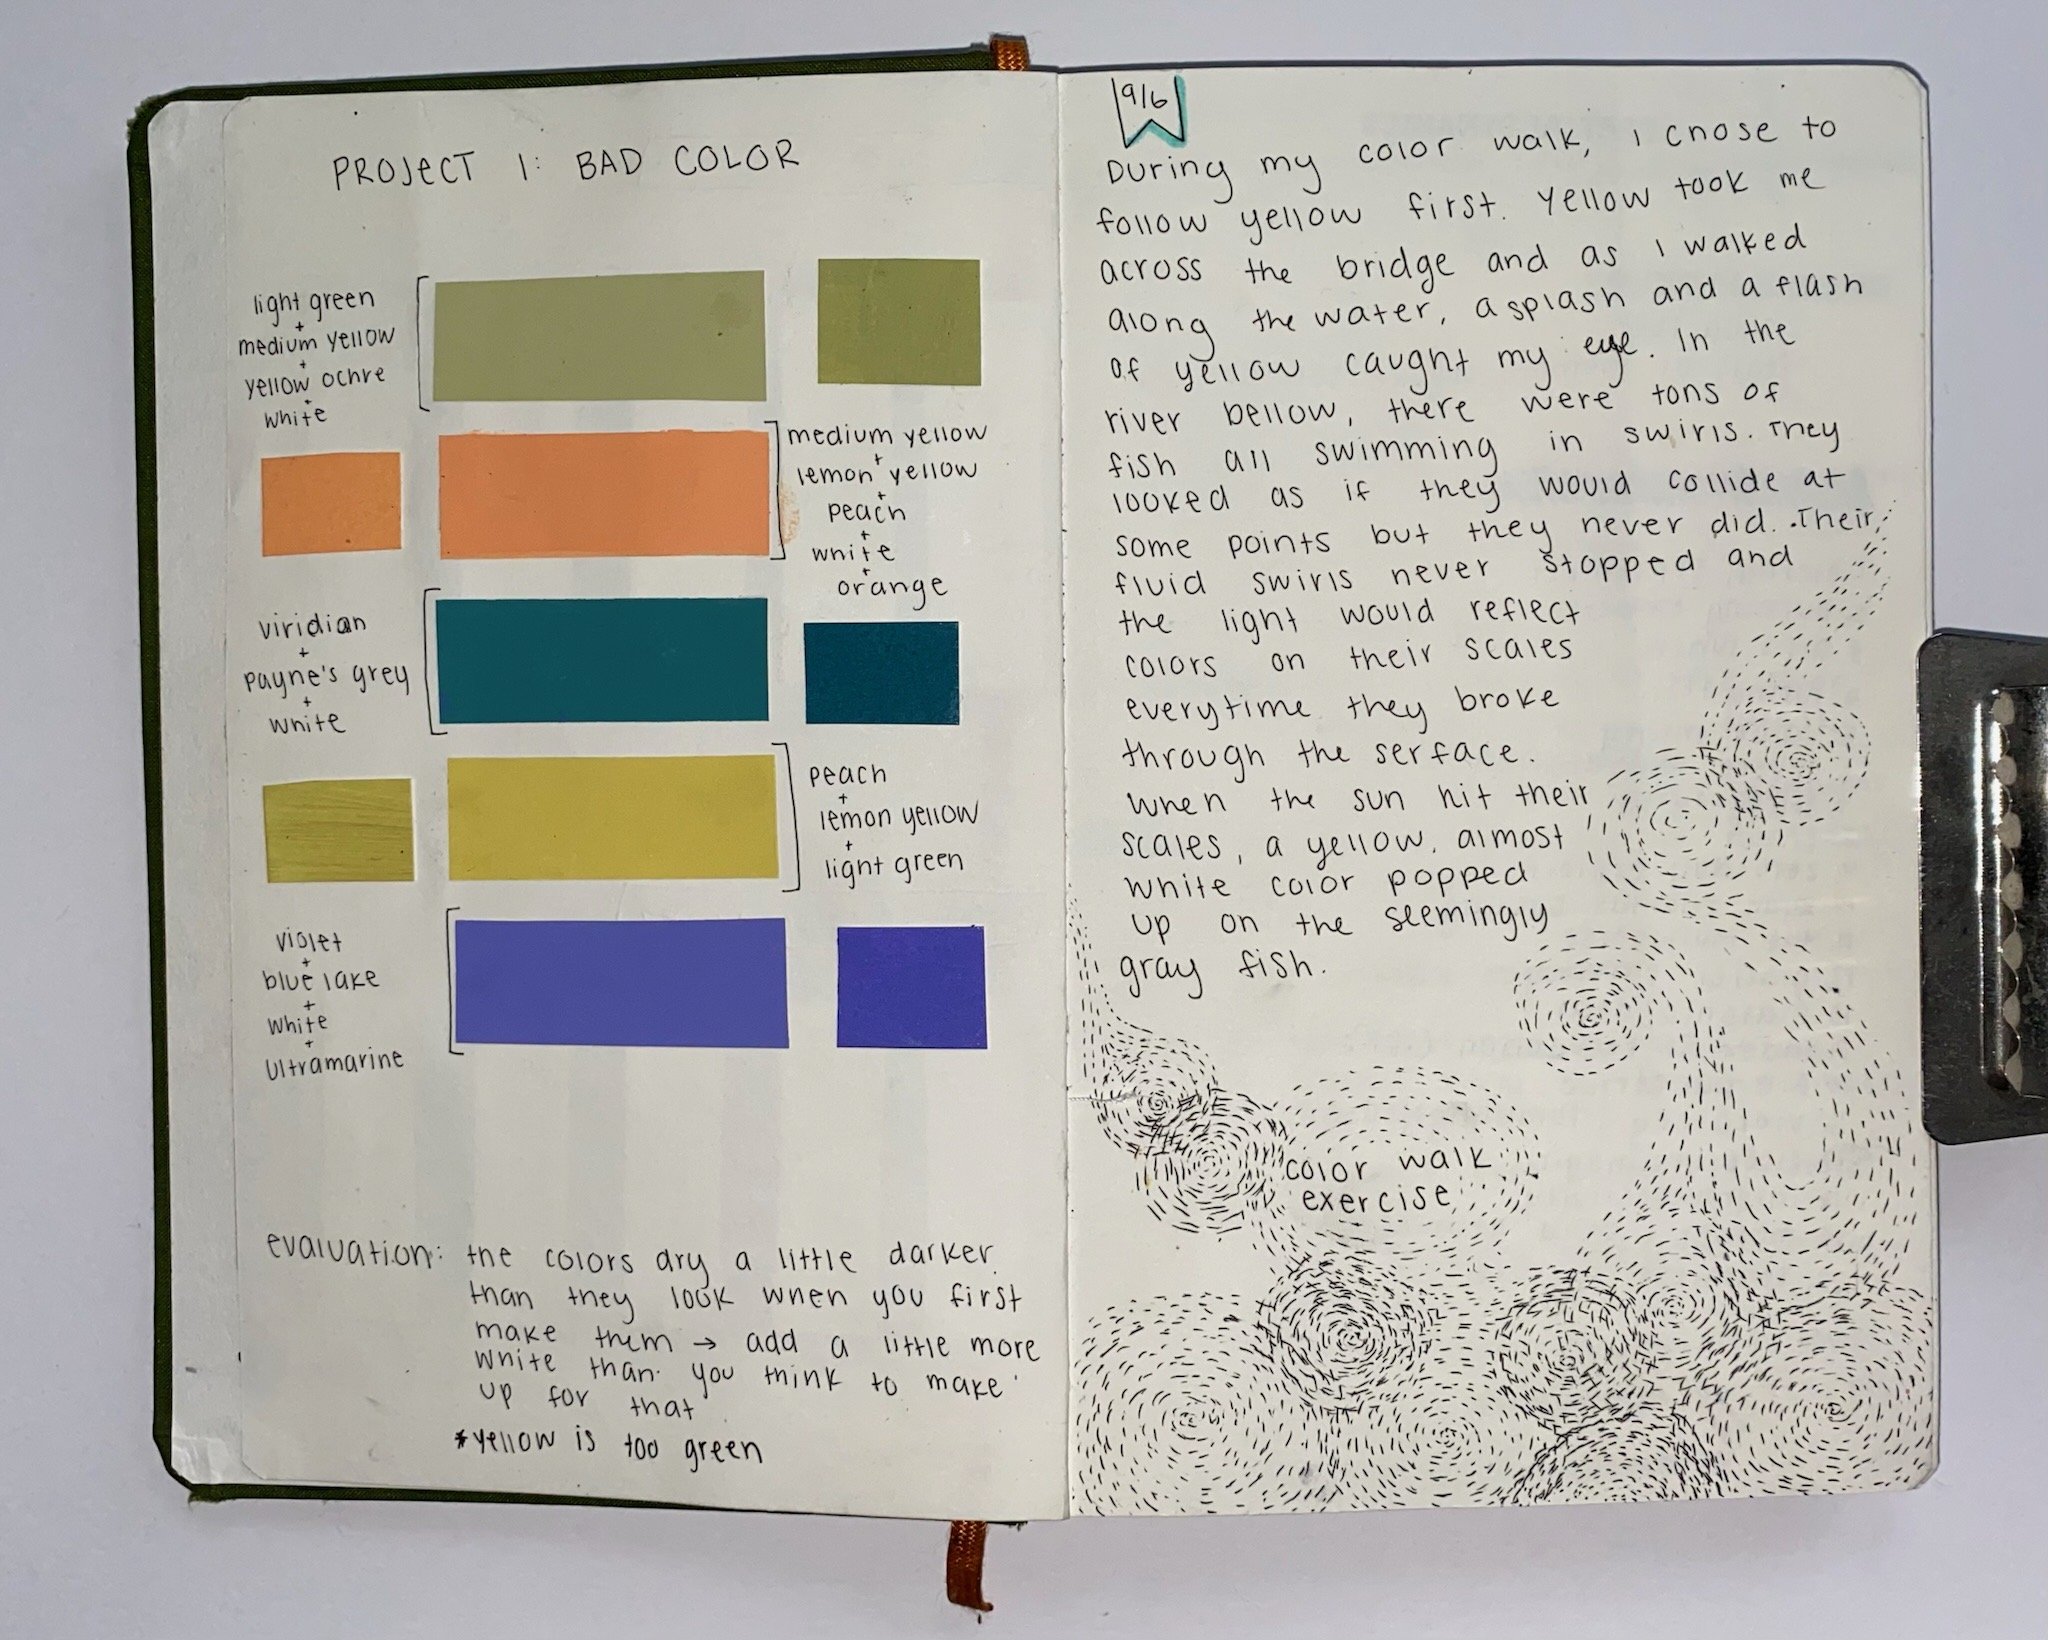 PROJECT 1: BAD COLOR
light green
+
medium yellow
+
yellow ochre
+
white
medium yellow
+
lemon yellow
+
peach
+
white
+
orange
viridian
+
payne's grey
+
white
peach
+
lemon yellow
+
light green
violet
+
blue lake
+
white
+
ultramarine
evaluation: the colors dry a little darker
than they look when you first
make them → add a little more
white than you think to make
up for that
*yellow is too green
9/6
During my color walk, I chose to
follow yellow first. Yellow took me
across the bridge and as I walked
along the water, a splash and a flash
of yellow caught my eye. In the
river bellow, there were tons of
fish all swimming in swirls. They
looked as if they would collide at
some points but they never did. Their
fluid swirls never stopped and
the light would reflect
colors on their scales
everytime they broke
through the serface.
When the sun hit their
scales, a yellow, almost
white color popped
up on the seemingly
gray fish.
color walk
exercise